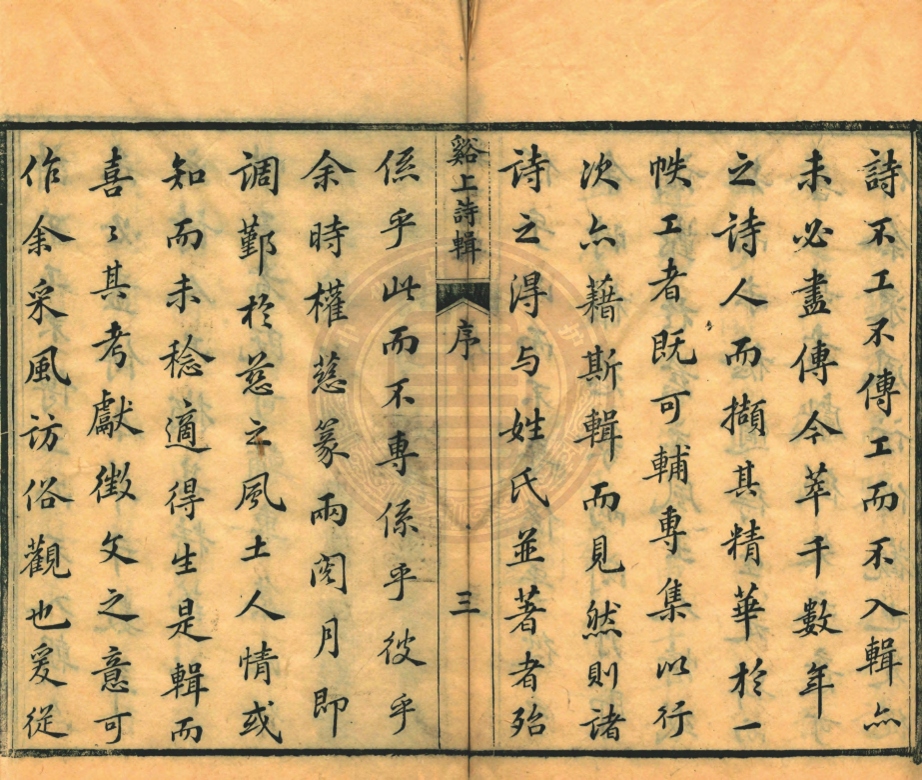 詩不工不傳工而不入輯亦
未必盡傳今萃千數年
之詩人而擷其精華於一
帙工者既可輔專集以行
次亦藉斯輯而見然則諸
詩之得与姓氏並著者殆
谿上詩輯
序
三
係乎此而不專係乎彼乎
余時權慈篆兩閱月即
調鄞於慈之風土人情或
知而未稔適得生是輯而
喜〻其考獻徵文之意可
作余采風訪俗觀也爰從